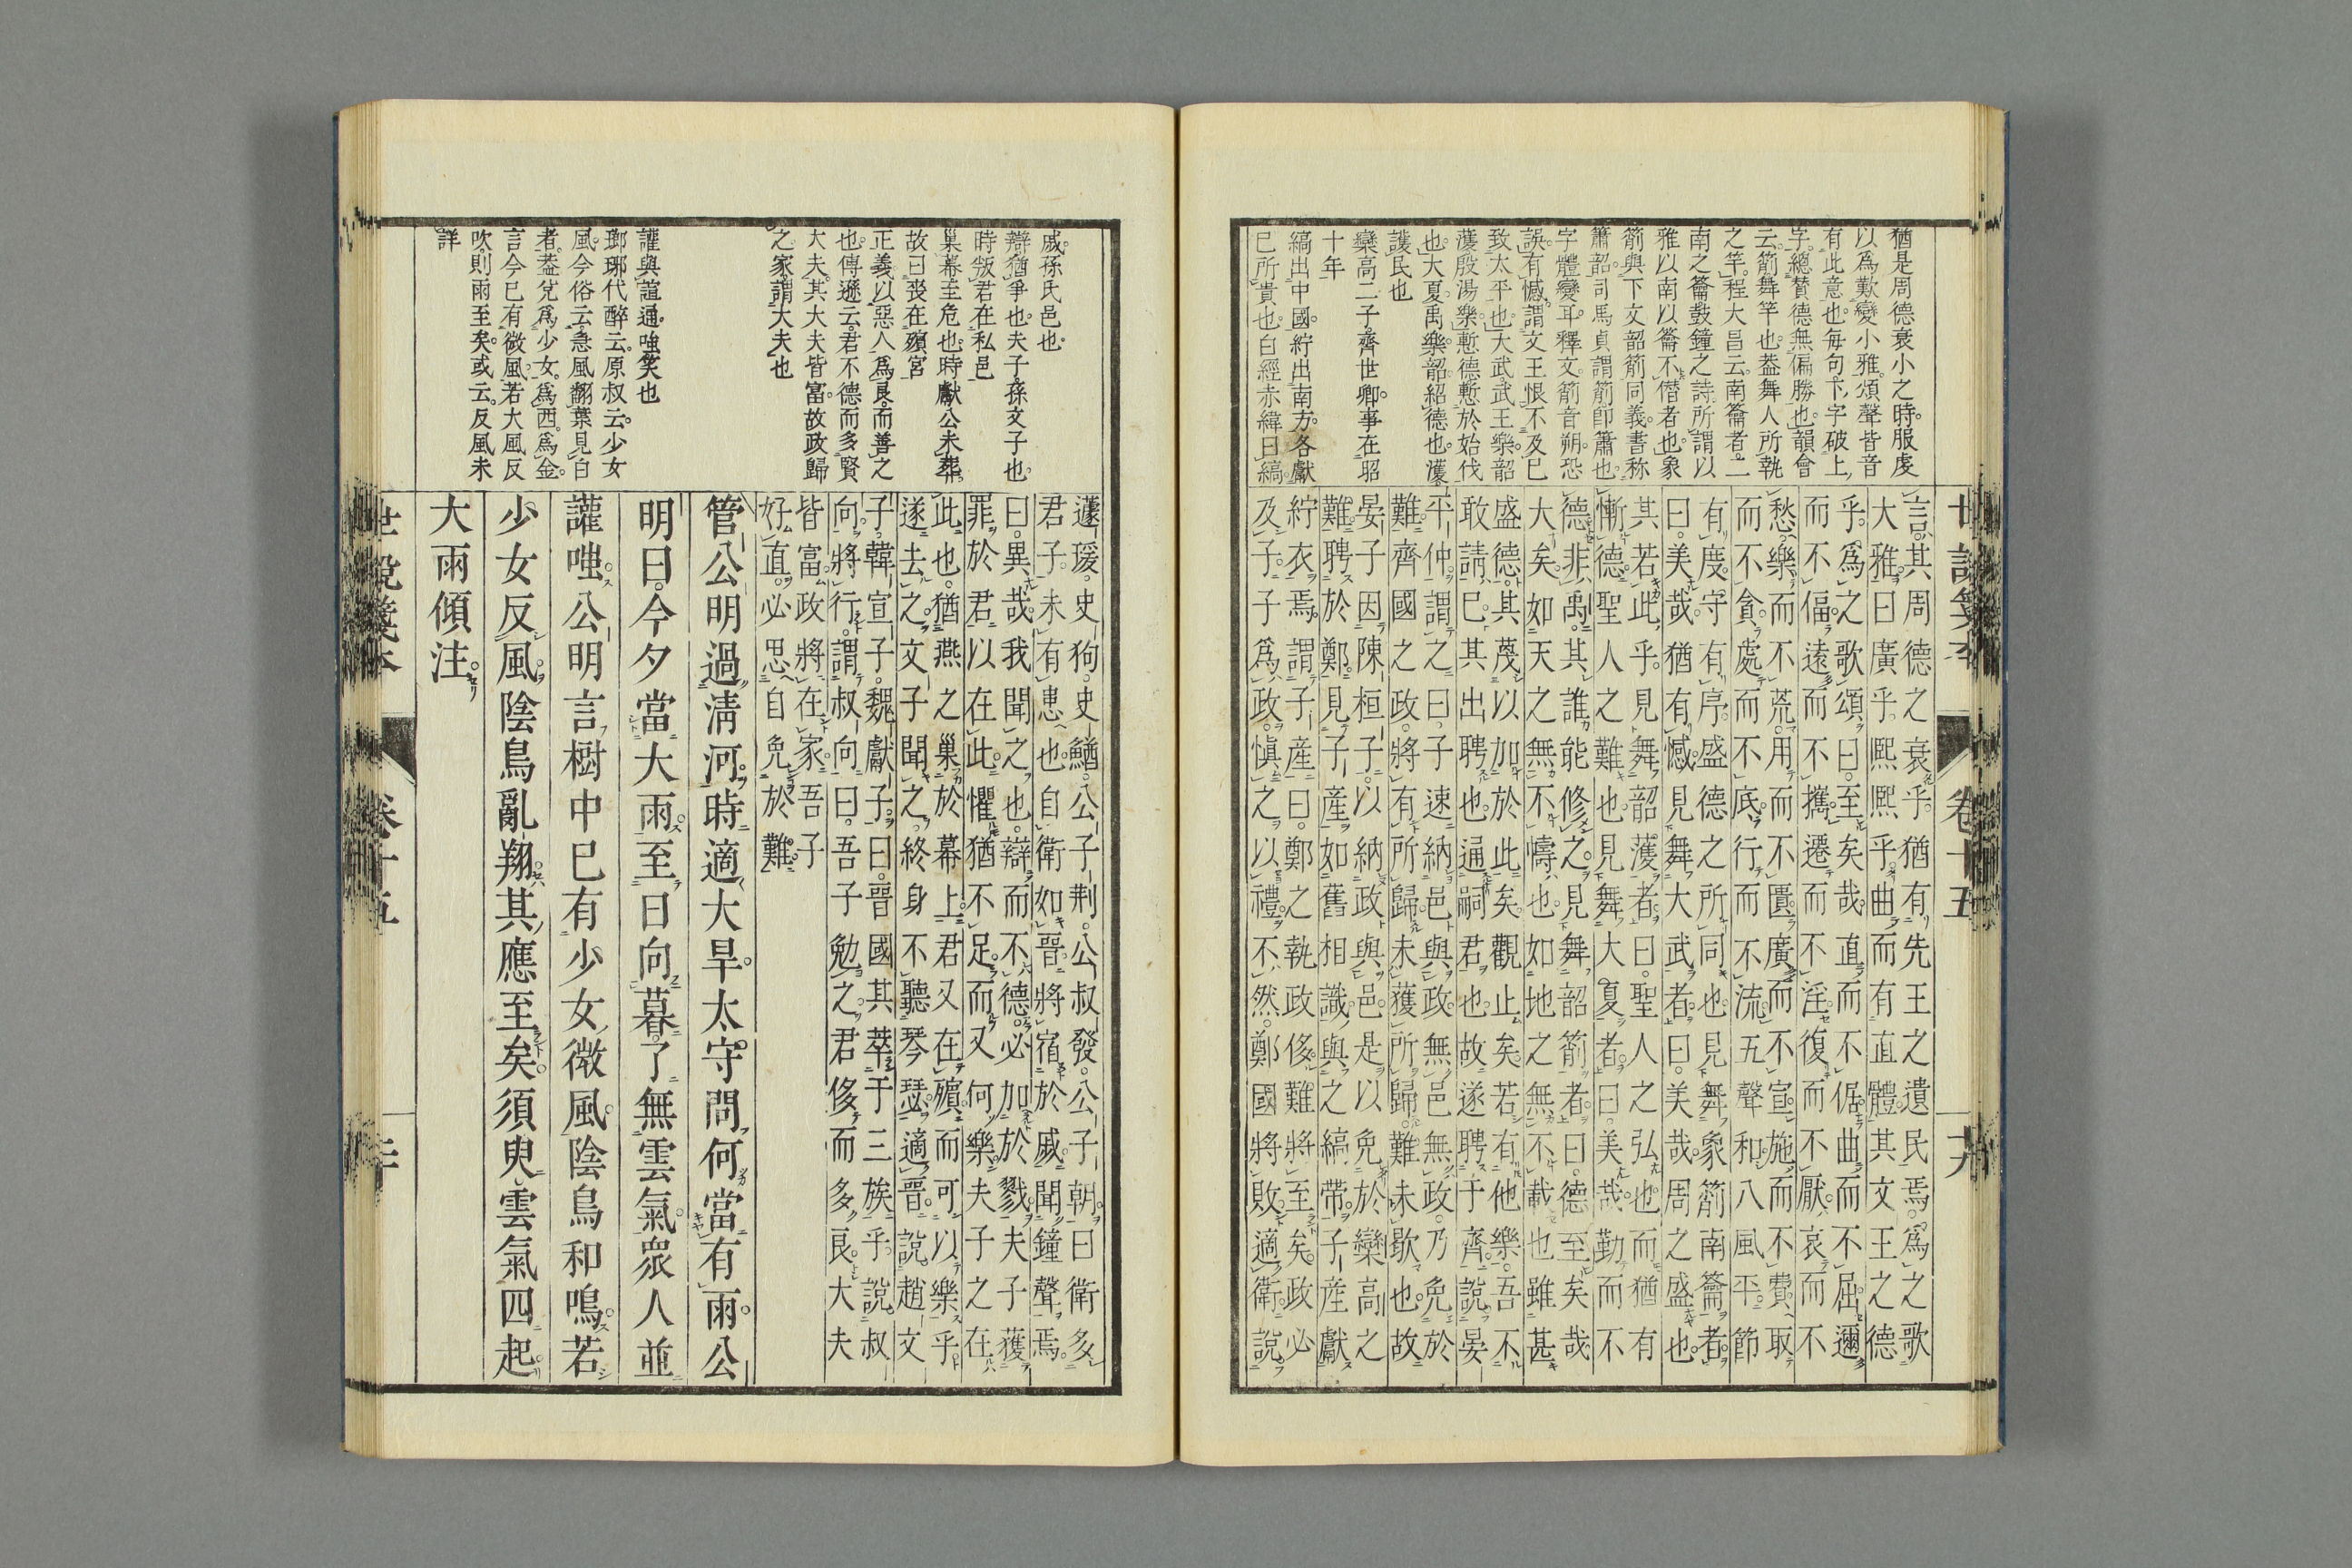 世説箋本 卷十五 十九
猶是周德衰小之時。服虔
以爲歎變小雅。頌聲皆音
有此意也。毎句。卞字破上
字。總賛德無偏勝也。韻會
云。箾舞竿也。葢舞人所執
之竿。程大昌云。南籥者。二
南之籥。鼓鐘之詩。所謂以
雅以南以籥不僭者也。象
箾與下文韶箾同義。書称
簫韶。司馬貞謂箾卽簫也
字體變耳。釋文箾音朔。恐
誤。有憾謂文王恨不及已
致太平也。大武武王樂。韶
濩殷湯樂。慙德慙於始伐
也。大夏禹樂。韶紹德也。濩
護民也
欒高二子。齊世卿。事在昭
十年
縞出中國。紵出南方。各獻
已所貴也。白經赤緯曰縞
言。其周德之衰乎。猶有先王之遺民焉。爲之歌
大雅。曰廣乎。熙熙乎。曲而有直體。其文王之德
乎。爲之歌頌。曰。至矣哉。直而不倨。曲而不屈。邇
而不偪。遠而不攜。遷而不淫。復而不厭。哀而不
愁。樂而不荒。用而不匱。廣而不宣。施而不費。取
而不貪。處而不底。行而不流。五聲和。八風平。節
有度。守有序。盛德之所同也。見舞象箾南籥者。
曰。美哉。猶有憾。見舞大武者。曰。美哉。周之盛也。
其若此乎。見舞韶濩者。曰。聖人之弘也。而猶有
慚德。聖人之難也。見舞大夏者。曰。美哉。勤而不
德。非禹其誰能修之。見舞韶箾者。曰。德至矣哉。
大矣。如天之無不幬也。如地之無不載也。雖甚
盛德。其蔑以加於此矣。觀止矣。若有他樂。吾不
敢請已。其出聘也。通嗣君也。故遂聘于齊。説晏
平仲。謂之曰。子速納邑與政。無邑無政。乃免於
難。齊國之政。將有所歸。未獲所歸。難未歇也。故
晏子因陳桓子。以納政與邑。是以免於欒高之
難。聘於鄭。見子産。如舊相識。與之縞帶。子産獻
紵衣焉。謂子産曰。鄭之執政侈。難將至矣。政必
及子。子爲政。愼之以禮。不然。鄭國將敗。適衛。説
戚。孫氏邑也。
辯。猶爭也。夫子。孫文子也。
時叛君在私邑
巢幕至危也。時獻公未葬。
故曰喪在殯宮
正義。以惡人爲良。而善之
也。傳遜云。君不德而多賢
大夫。其大夫皆富。故政歸
之家。謂大夫也
讙與諠通。㗛笑也
瑯琊代醉云。原叔云。少女
風。今俗云。急風翻葉見白
者。葢兌爲少女。爲西。爲金。
言今已有微風。若大風反
吹。則雨至矣。或云。反風未
詳
蘧瑗。史狗。史鰌。公子荆。公叔發。公子朝。曰衛多
君子。未有患也。自衛如晋。將宿於戚。聞鐘聲焉。
曰。異哉。我聞之也。辯而不德。必加於戮。夫子獲
罪於君。以在此。懼猶不足。而又何樂。夫子之在
此也。猶燕之巢於幕上。君又在殯。而可以樂乎。
遂去之。文子聞之。終身不聽琴瑟。適晋。説趙文
子。韓宣子。魏獻子。曰。晋國其萃于三族乎。説叔
向。將行。謂叔向曰。吾子勉之。君侈而多良。大夫
皆富。政將在家。吾子
好直。必思自免於難。
管公明過淸河。時適大旱。太守問。何當有雨。公
明曰。今夕當大雨。至日向暮。了無雲氣。衆人並
讙㗛。公明言樹中已有少女微風。陰鳥和鳴。若
少女反風。陰鳥亂翔。其應至矣。須臾。雲氣四起。
大雨傾注。
世説箋本 卷十五